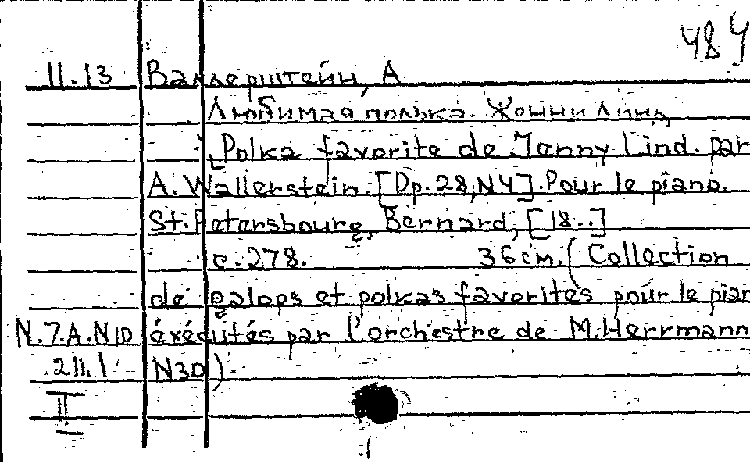 484
11.13 Валлерштейн, А
Любимая полька Жонни Линд,
[Polka favorite de Jenny Lind. par
A. Wallerstein. [Op. 28, N4]. Pour le piano.
St. Petersbourg, Bernard, [18..]
c. 278. 36 cm. (Collection
de galops et polkas favorites pour le pian
N.7.A.N10 éxécutés par l'orchestre de M. Herrmann
211.1 N30)
II